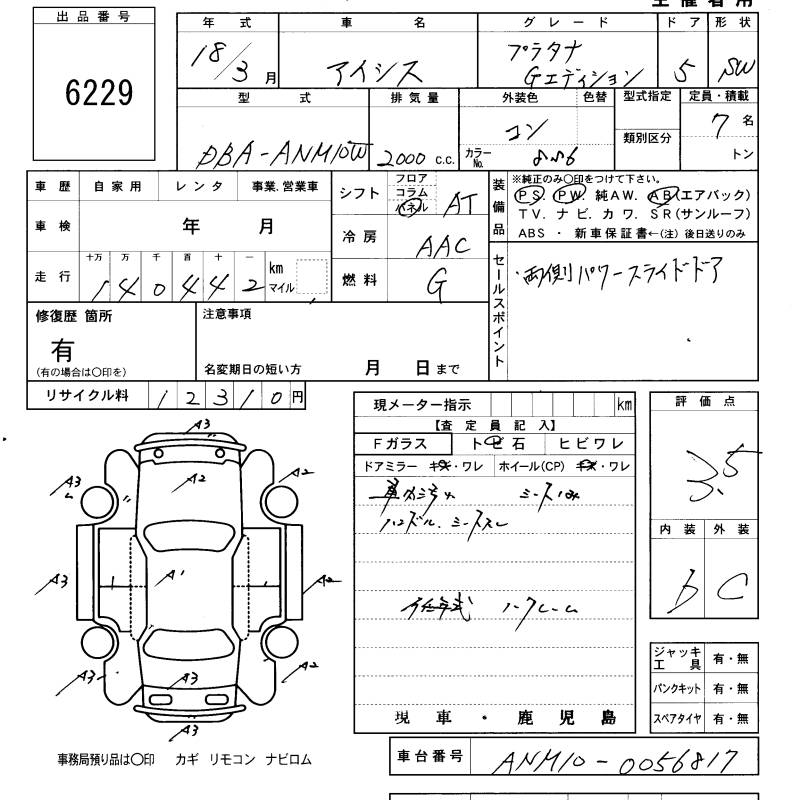 出品番号
6229
年式 車名 グレード ドア 形状
18/3月 アイシス プラタナ Gエディション 5 SW
型式 排気量 外装色 色替 型式指定 定員・積載
DBA-ANM10W 2000 c.c. コン 7名
カラーNo. 類別区分 トン
車歴 自家用 レンタ 事業.営業車
車検 年 月
走行 十万 万 千 百 十 一
140442 km マイル
シフト フロア コラム パネル AT
冷房 AAC
燃料 G
装備品
※純正のみ〇印をつけて下さい。
PS. PW. 純AW. AB(エアバック)
TV. ナビ. カワ. SR(サンルーフ)
ABS ・ 新車保証書←(注) 後日送りのみ
セールスポイント
両側パワースライドドア
修復歴 箇所
有
(有の場合は〇印を)
注意事項
名変期日の短い方 月 日まで
リサイクル料 12310円
現メーター指示 km
【査定員記入】
Fガラス トビ石 ヒビワレ
ドアミラー キズ・ワレ ホイール(CP) キズ・ワレ
ハンドル.
ノークレーム
現車・鹿児島
評価点
3.5
内装 外装
b C
ジャッキ工具 有・無
パンクキット 有・無
スペアタイヤ 有・無
A3
A3 A2 A2
A3 A1 A2
A3 A3 A2
A3
事務局預り品は〇印 カギ リモコン ナビロム
車台番号 ANM10-0056817